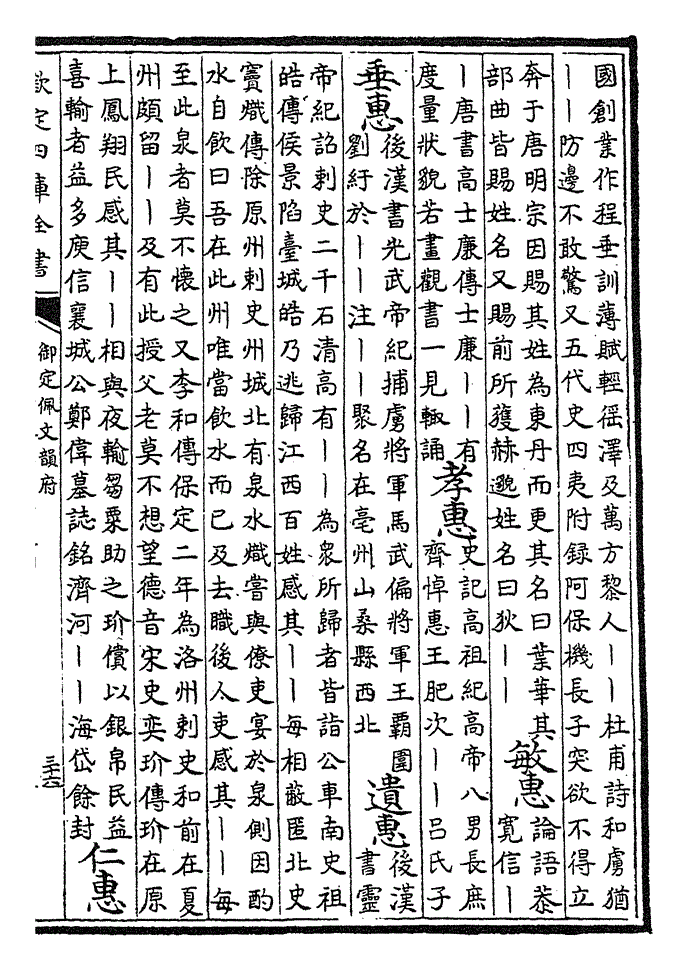 國創業作程垂訓薄賦輕徭澤及萬方黎人丨丨杜甫詩和虜猶
丨丨防邊不敢驚又五代史四夷附録阿保機長子突欲不得立
奔于唐明宗因賜其姓為東丹而更其名曰葉華其
部曲皆賜姓名又賜前所獲赫邈姓名曰狄丨丨
敏惠
論語恭
寛信丨
丨唐書高士廉傳士廉丨丨有
度量狀貌若畫觀書一見輒誦
孝惠
史記高祖紀高帝八男長庶
齊悼惠王肥次丨丨吕氏子
垂惠
後漢書光武帝紀捕虜將軍馬武偏將軍王覇圍
劉紆於丨丨注丨丨聚名在亳州山桑縣西北
遺惠
後漢
書靈
帝紀詔刺史二千石清高有丨丨為衆所歸者皆詣公車南史祖
皓傳侯景陷臺城皓乃逃歸江西百姓感其丨丨每相蔽匿北史
竇熾傳除原州刺史州城北有泉水熾嘗與僚吏宴於泉側因酌
水自飲曰吾在此州唯當飲水而已及去職後人吏感其丨丨每
至此泉者莫不懷之又李和傳保定二年為洛州刺史和前在夏
州頗留丨丨及有此授父老莫不想望德音宋史奕玠傳玠在原
上鳳翔民感其丨丨相與夜輸芻粟助之玠償以銀帛民益
喜輸者益多庾信襄城公鄭偉墓誌銘濟河丨丨海岱餘封
仁惠
欽定四庫全書
御定佩文韻府
三十六